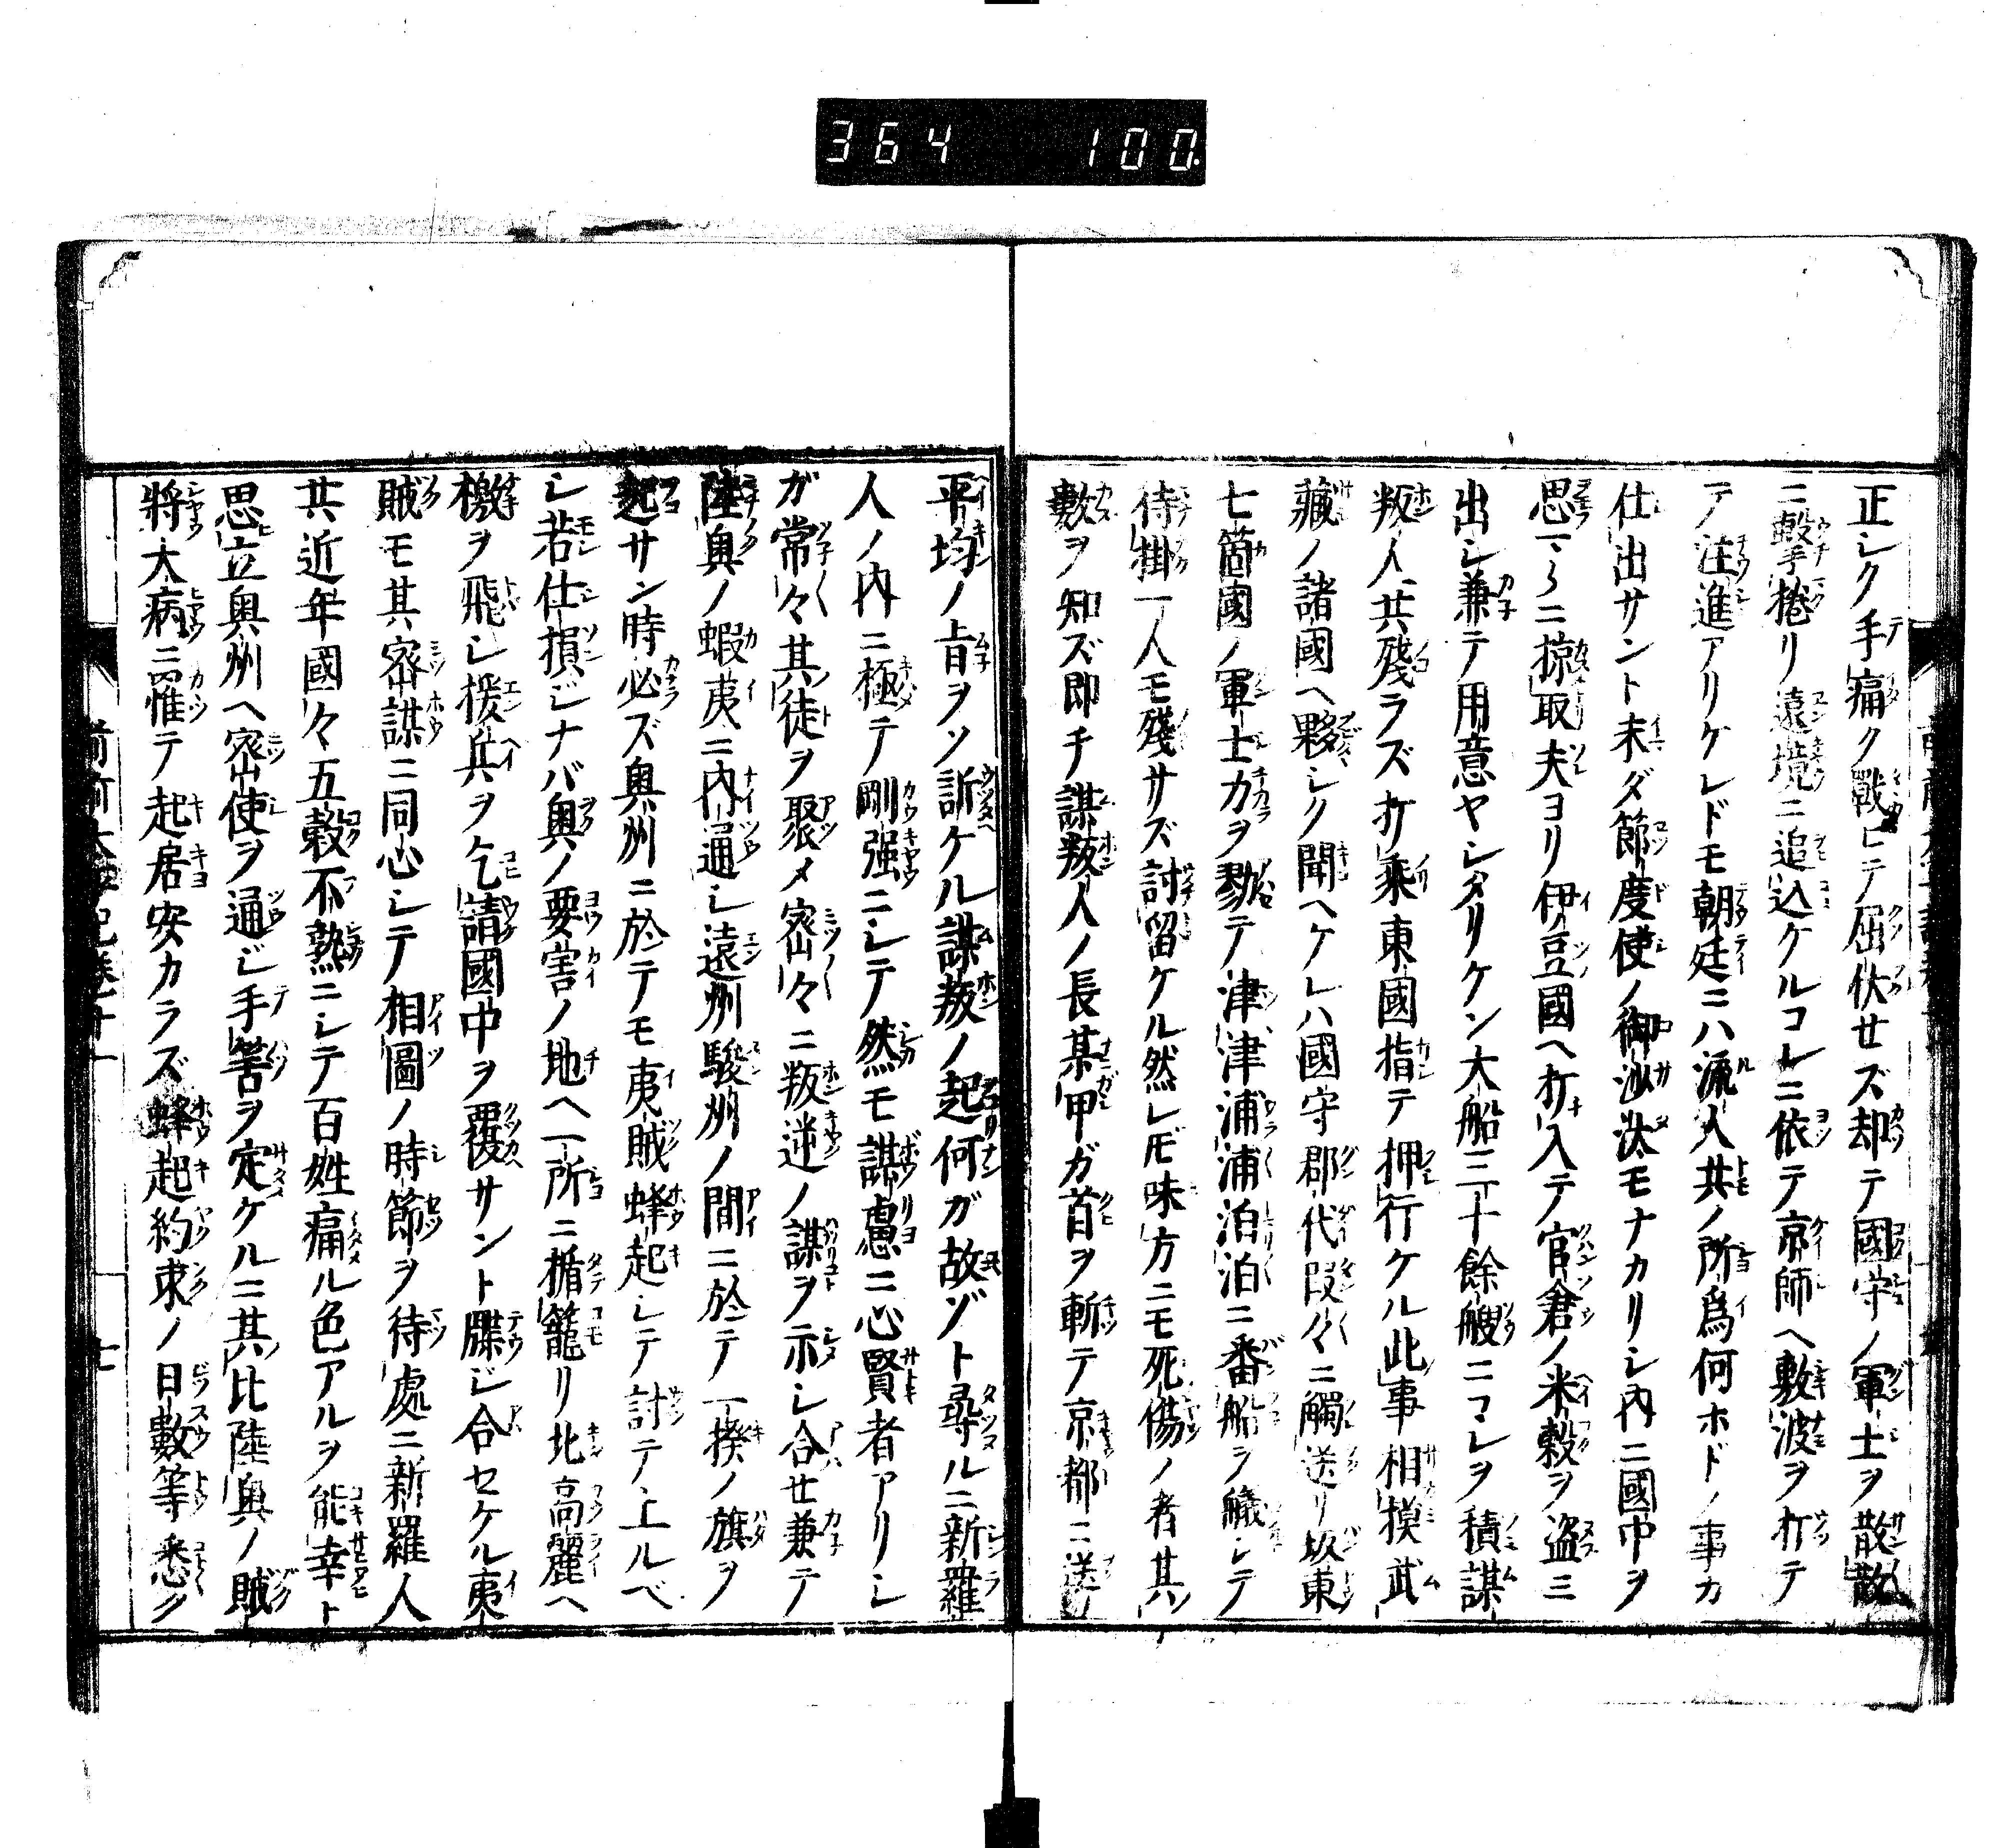 364 100.
正レク手痛ク戰ヒテ屈伏せズ却テ國守ノ軍士ヲ散散
ニ擊捲リ遠境ニ追込ケルコレニ依テ京師ヘ敷波ヲ打テ
テ注進アリケレドモ朝廷ニハ流人共ノ所爲何ホドノ事カ
仕出サント未ダ節度使ノ御沙汰モナカリシ内ニ國中ヲ
思フマヽニ掠取夫ヨリ伊豆國ヘ打入テ官倉ノ米穀ヲ盗ミ
出シ兼テ用意ヤシタリケン大船三十餘艘ニコレヲ積謀
叛人共殘ラズ打乘東國指テ押行ケル此事相模武
藏ノ諸國ヘ夥シク聞ヘケレハ國守郡代段々ニ觸送リ坂東
七箇國ノ軍士力ヲ勠テ津津浦浦泊泊ニ番船ヲ艤シテ
待掛一人モ殘サズ討留ケル然レ𪜈味方ニモ死傷ノ者其
數ヲ知ズ即チ謀叛人ノ長某甲ガ首ヲ斬テ京都ニ送リ
平均ノ旨ヲソ訴ケル謀叛ノ起何ガ故ゾト尋ルニ新羅
人ノ内ニ極テ剛强ニシテ然モ謀慮ニ心賢者アリシ
ガ常々其徒ヲ聚メ密々ニ叛逆ノ謀ヲ示シ合せ兼テ
陸奥ノ蝦夷ニ内通シ遠州駿州ノ間ニ於テ一揆ノ旗ヲ
起サン時必ズ奥州ニ於テモ夷賊蜂起シテ討テ上ルベ
シ若仕損ジナバ奥ノ要害ノ地ヘ一所ニ楯籠リ北高麗ヘ
檄ヲ飛シ援兵ヲ乞請國中ヲ覆サント牒ジ合セケル夷
賊モ其密謀ニ同心シテ相圖ノ時節ヲ待處ニ新羅人
共近年國々五穀不熟ニシテ百姓痛ル色アルヲ能幸ト
思立奥州ヘ密使ヲ通ジ手筈ヲ定ケルニ其比陸奥ノ賊
將大病ニ罹テ起居安カラズ蜂起約束ノ日數等悉ク